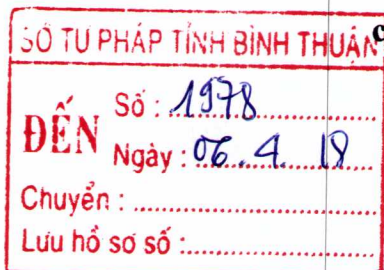 SỞ TƯ PHÁP TỈNH BÌNH THUẬN
ĐẾN
Số : 1978
Ngày : 06. 4. 18
Chuyển :
Lưu hồ sơ số :